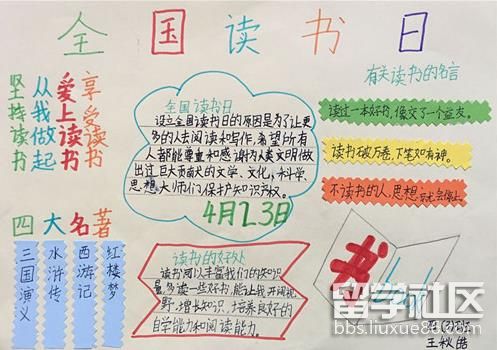 全国读书日
坚持读书
从我做起
爱上读书
享受读书
全国读书日
设立全国读书日的原因是为了让更
多的人去阅读和写作,希望所有
人都能尊重和感谢为人类文明做
出过巨大贡献的文学、文化、科学、
思想大师们,保护知识产权。
4月23日
有关读书的名言
读过一本好书,像交了一个益友。
读书破万卷,下笔如有神。
不读书的人,思想就会停止。
四大名著
三国演义
水浒传
西游记
红楼梦
读书的好处
读书可以丰富我们的知识
量,多读一些好书,能让我开阔视
野,增长知识,培养良好的
自学能力和阅读能力。
书
王秋皓
留学社区
bbs.liuxue86.com